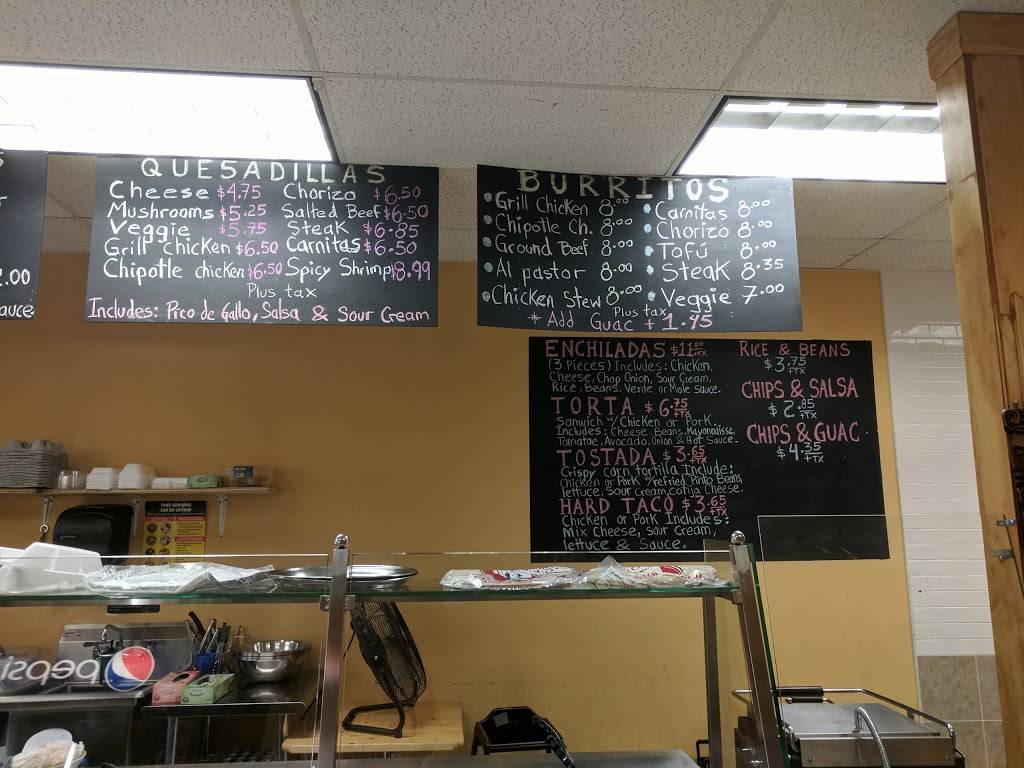 2.00
auce
QUESADILLAS
Cheese $4.75 Chorizo $6.50
Mushrooms $5.25 Salted Beef $6.50
Veggie $5.75 Steak $6.85
Grill chicken $6.50 Carnitas $6.50
Chipotle chicken $6.50 Spicy Shrimp $8.99
Plus tax
Includes: Pico de Gallo, Salsa & Sour Cream
BURRITOS
Grill Chicken 8.00 Carnitas 8.00
Chipotle Ch. 8.00 Chorizo 8.00
Ground Beef 8.00 Tofú 8.00
Al pastor 8.00 Steak 8.35
Chicken Stew 8.00 Veggie 7.00
Plus tax
* Add Guac + 1.45
ENCHILADAS $11.00 +TX
(3 Pieces) Includes: Chicken,
Cheese, Chop Onion, Sour Cream,
Rice, Beans, Verde or Mole Sauce.
TORTA $6.75 +TX
Sandwich w/ Chicken or Pork.
Includes: Cheese, Beans, Mayonaisse,
Tomatoe, Avocado, Onion & Hot Sauce.
TOSTADA $3.65 +TX
Crispy corn tortilla Include:
Chicken or Pork w/refried Pinto Beans
lettuce, Sour Cream, Cotija Cheese.
HARD TACO $3.65 +TX
Chicken or Pork Includes:
Mix Cheese, Sour Cream,
lettuce & Sauce.
RICE & BEANS
$3.75 +TX
CHIPS & SALSA
$2.85 +TX
CHIPS & GUAC
$4.35 +TX
pepsi